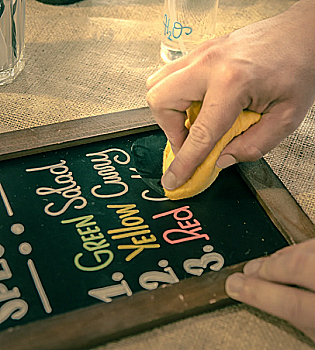 H2O
SPE
1. GREEN Salad
2. Yellow Curry
3. Red